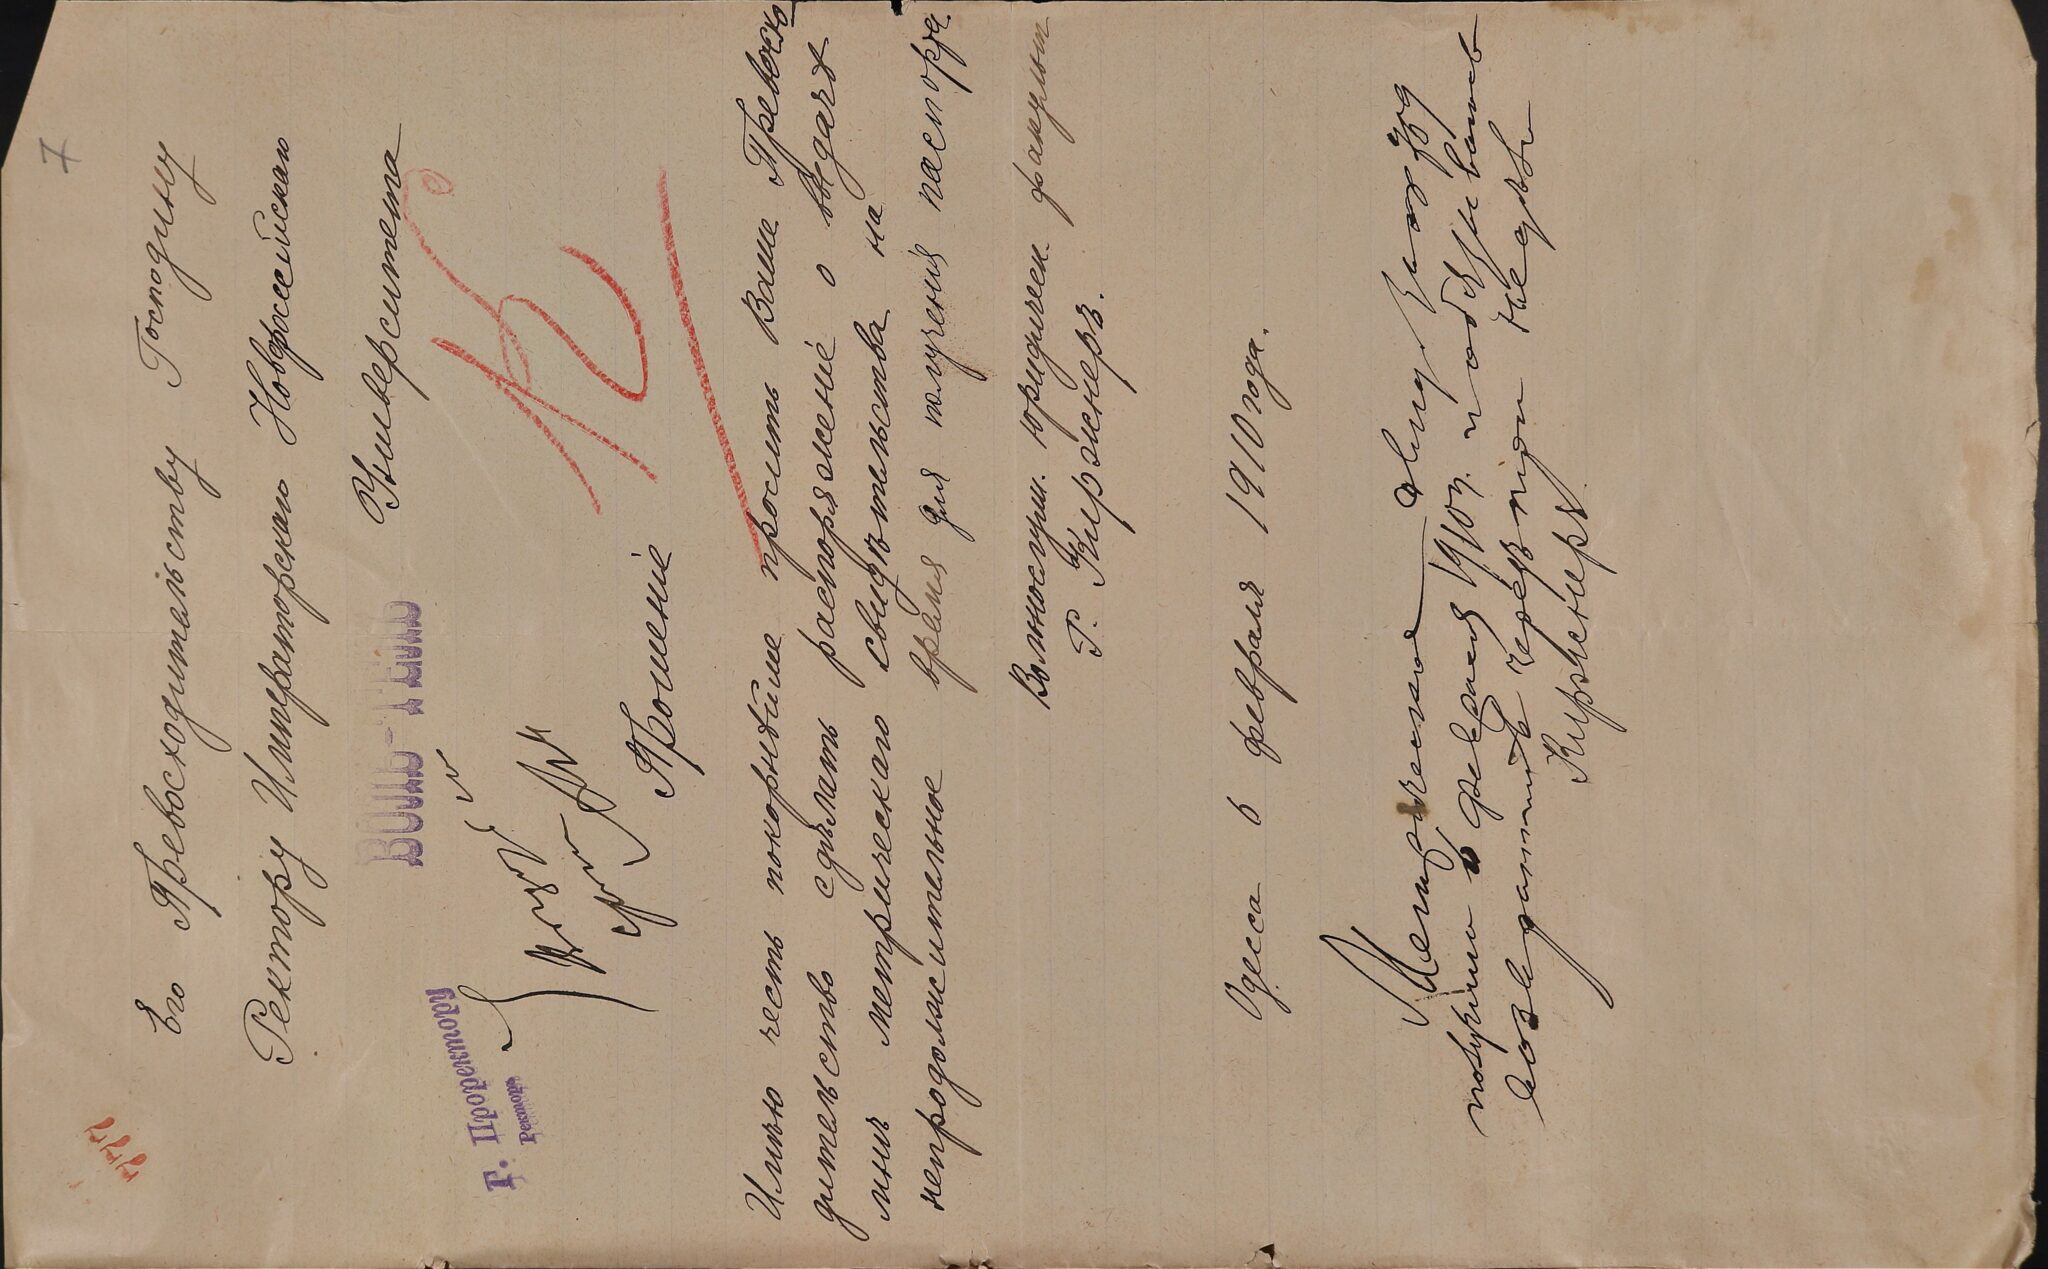 7
Его Превосходительству Господину
Ректору Императорскаго Новороссійскаго
Университета
ВОЛЬ-ТЕЛЬ
Г. Проректору
Ректоръ
Прошеніе
Имѣю честь покорнѣйше просить Ваше Превосхо
дительство сдѣлать распоряженіе о выдачѣ
мнѣ метрическаго свидѣтельства на
непродолжительное время для полученія паспорта.
Вольнослуш. юридическ. факульт
Г. Киржнеръ.
Одесса 6 февраля 1910 года.
Метрическое
получилъ 6 февраля 1910 г. и обязываюсь
возвратить черезъ три недѣли
Киржнеръ